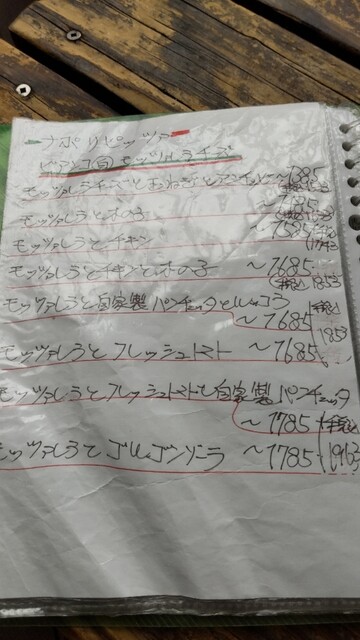 ナポリピッツァ
ビアンコ(白)モッツァレラチーズ
モッツァレラチーズとおねぎとアンチョビ ～1385
モッツァレラときの子
モッツァレラとチキン ～1585 (1743
モッツァレラとチキンときの子 ～1685 (税込1853
モッツァレラと自家製パンチェッタとルッコラ
～1685 税込 1853
モッツァレラとフレッシュトマト ～1685
モッツァレラとフレッシュトマトと自家製パンチェッタ
～1785 税込
モッツァレラとゴルゴンゾーラ ～1785 (1963